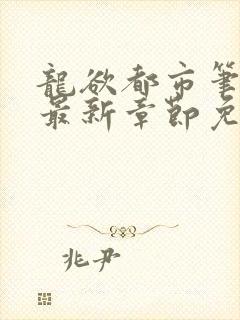 龍欲都市筆
最新章節免
兆尹